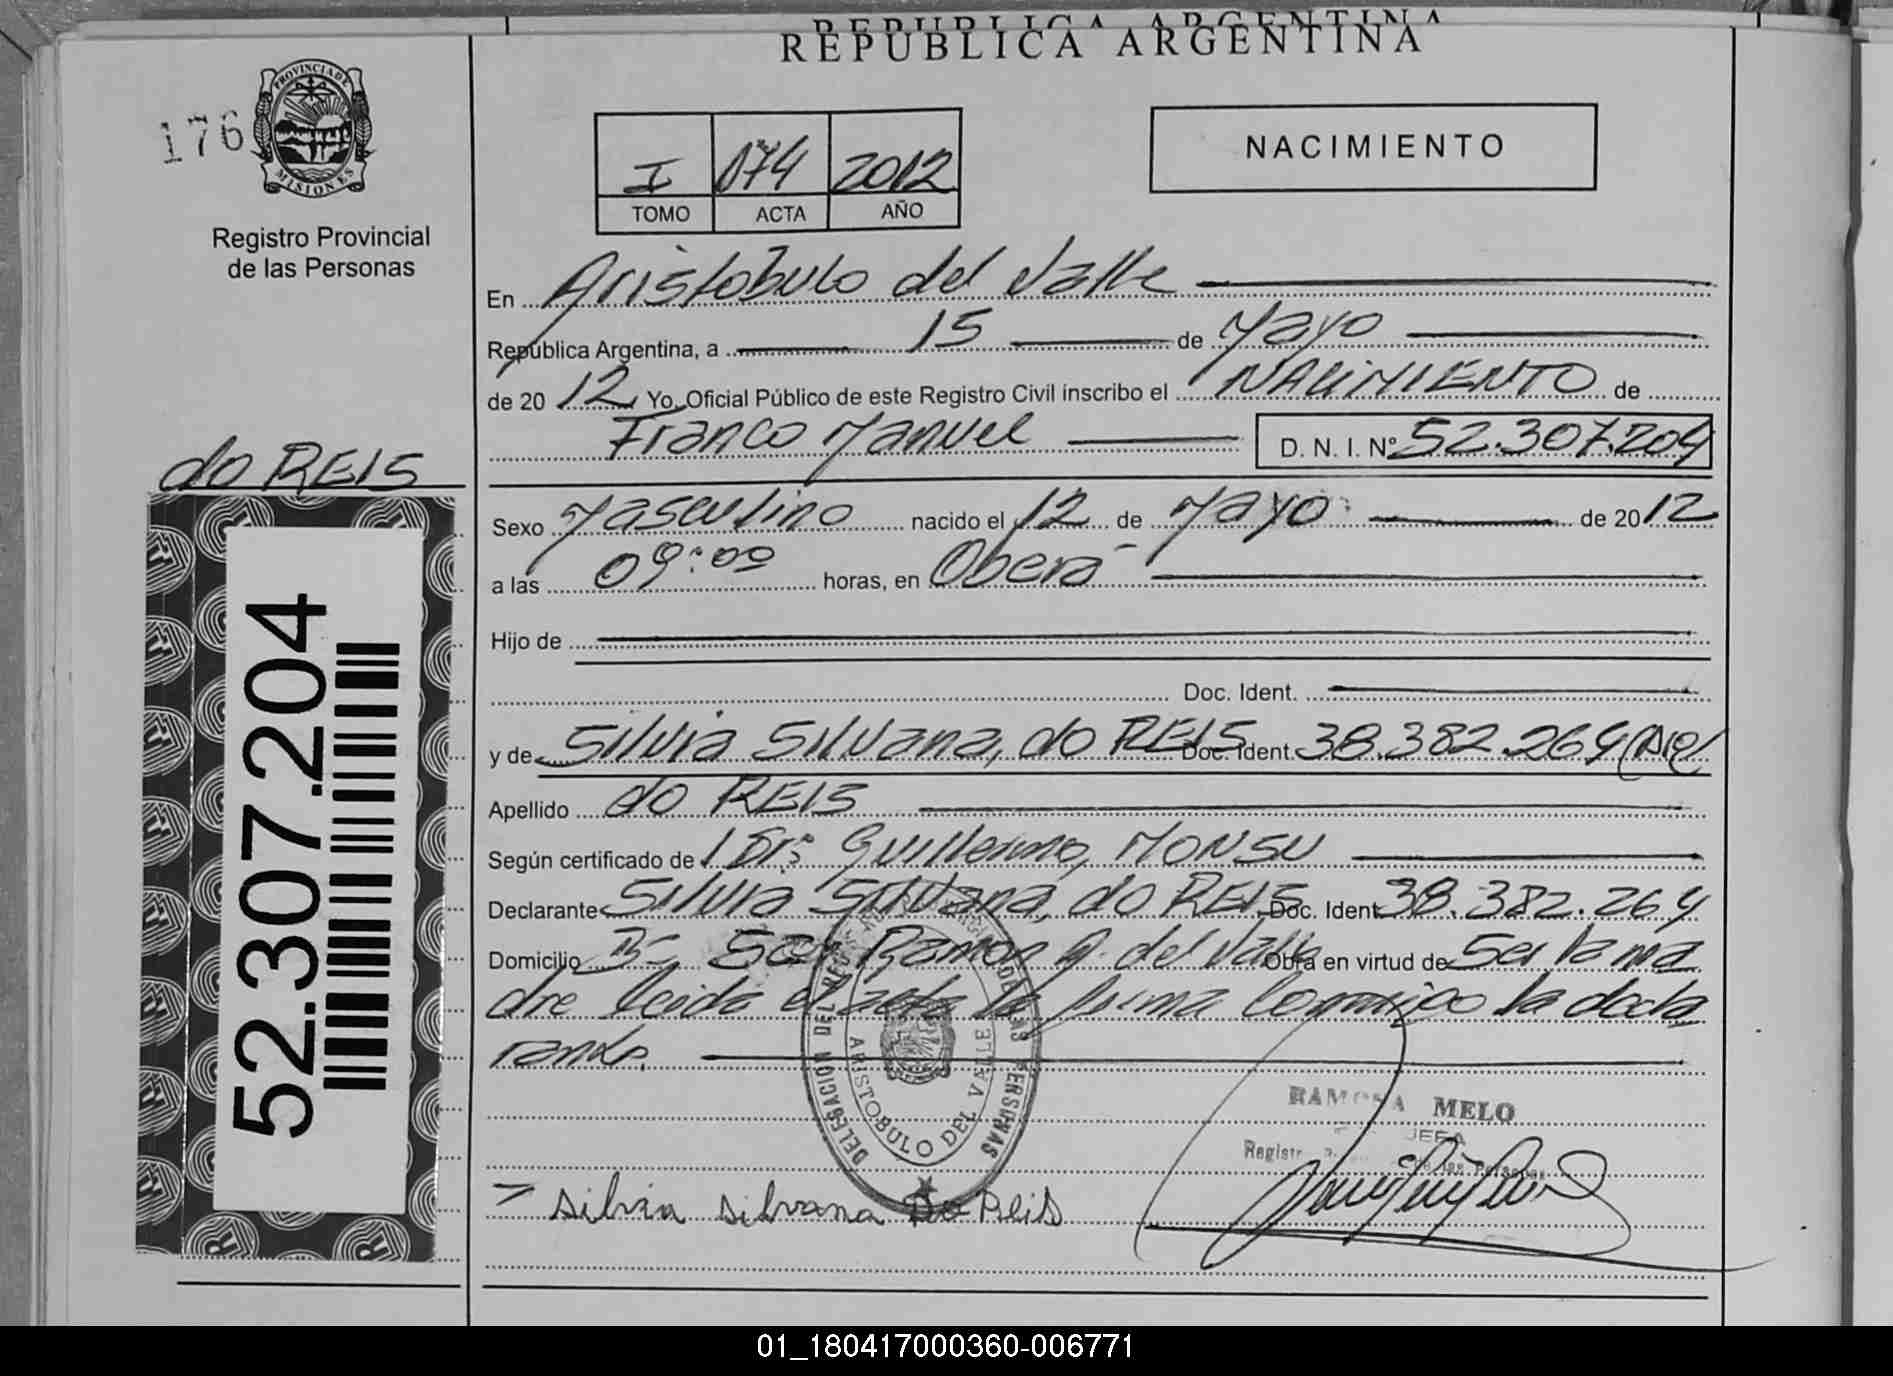 REPUBLICA ARGENTINA
REPUBLICA ARGENTINA
176
PROVINCIA DE
MISIONES
Registro Provincial
de las Personas
I 174 2012
TOMO ACTA AÑO
NACIMIENTO
En Aristobulo del Valle
República Argentina, a 15 de Mayo
de 2012 Yo, Oficial Público de este Registro Civil inscribo el NACIMIENTO de
Franco Manuel D. N. I. Nº 52.307.204
do REIS
Sexo Masculino nacido el 12 de Mayo de 2012
a las 09:00 horas, en Oberá
Hijo de
Doc. Ident.
y de Silvia Silvana, do REIS Doc. Ident. 38.382.264
Apellido do REIS
Según certificado de Dr: Guillermo, MONSU
Declarante Silvia Silvana, do REIS Doc. Ident. 38.382.264
Domicilio Bº San Ramon A. del Valle Obra en virtud de Ser la ma
dre leida el acta la firma conmigo la decla
rante.
52.307.204
DELEGACION DEL REGISTRO DE LAS PERSONAS
ARISTOBULO DEL VALLE
RAMONA MELO
JEFA
Registro de las Personas
Silvia Silvana Do Reis
01_180417000360-006771